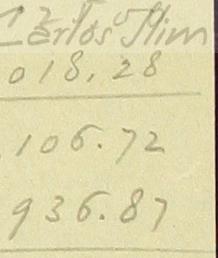 Carlos Slim
018.28
106.72
936.87